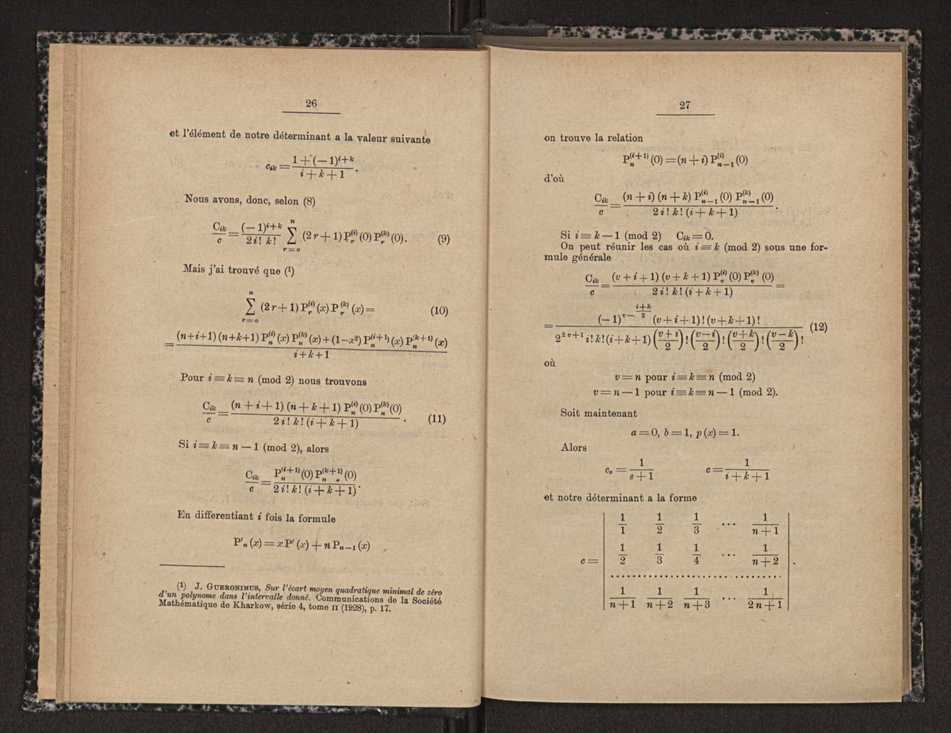 26
et l'élément de notre déterminant a la valeur suivante
c_{ik} = \frac{1 + (-1)^{i+k}}{i + k + 1}.
Nous avons, donc, selon (8)
\frac{C_{ik}}{c} = \frac{(-1)^{i+k}}{2 i! k!} \sum_{r=o}^{n} (2r + 1) P_r^{(i)}(0) P_r^{(k)}(0). (9)
Mais j'ai trouvé que (¹)
\sum_{r=o}^{n} (2r + 1) P_r^{(i)}(x) P_r^{(k)}(x) = (10)
= \frac{(n+i+1)(n+k+1) P_n^{(i)}(x) P_n^{(k)}(x) + (1-x^2) P_n^{(i+1)}(x) P_n^{(k+1)}(x)}{i+k+1}
Pour i ≡ k ≡ n (mod 2) nous trouvons
\frac{C_{ik}}{c} = \frac{(n + i + 1)(n + k + 1) P_n^{(i)}(0) P_n^{(k)}(0)}{2 i! k! (i + k + 1)}. (11)
Si i ≡ k ≡ n — 1 (mod 2), alors
\frac{C_{ik}}{c} = \frac{P_n^{(i+1)}(0) P_n^{(k+1)}(0)}{2 i! k! (i + k + 1)}.
En differentiant i fois la formule
P'_n (x) = x P' (x) + n P_{n-1} (x)
(¹) J. Gueronimus, Sur l'écart moyen quadratique minimal de zéro
d'un polynome dans l'intervalle donné. Communications de la Société
Mathématique de Kharkow, série 4, tome II (1928), p. 17.
27
on trouve la relation
P_n^{(i+1)}(0) = (n + i) P_{n-1}^{(i)}(0)
d'où
\frac{C_{ik}}{c} = \frac{(n + i)(n + k) P_{n-1}^{(i)}(0) P_{n-1}^{(k)}(0)}{2 i! k! (i + k + 1)}.
Si i ≡ k — 1 (mod 2) C_{ik} = 0.
On peut réunir les cas où i ≡ k (mod 2) sous une for-
mule générale
\frac{C_{ik}}{c} = \frac{(v + i + 1)(v + k + 1) P_v^{(i)}(0) P_v^{(k)}(0)}{2 i! k! (i + k + 1)} =
= \frac{(-1)^{v - \frac{i+k}{2}} (v + i + 1)! (v + k + 1)!}{2^{2v+1} i! k! (i+k+1) (\frac{v+i}{2})! (\frac{v-i}{2})! (\frac{v+k}{2})! (\frac{v-k}{2})!} (12)
où
v = n pour i ≡ k ≡ n (mod 2)
v = n — 1 pour i ≡ k ≡ n — 1 (mod 2).
Soit maintenant
a = 0, b = 1, p (x) = 1.
Alors
c_s = \frac{1}{s + 1} c = \frac{1}{i + k + 1}
et notre déterminant a la forme
\frac{1}{1} \frac{1}{2} \frac{1}{3} ... \frac{1}{n + 1}
c = \frac{1}{2} \frac{1}{3} \frac{1}{4} ... \frac{1}{n + 2} .
........................................
\frac{1}{n + 1} \frac{1}{n + 2} \frac{1}{n + 3} ... \frac{1}{2n + 1}